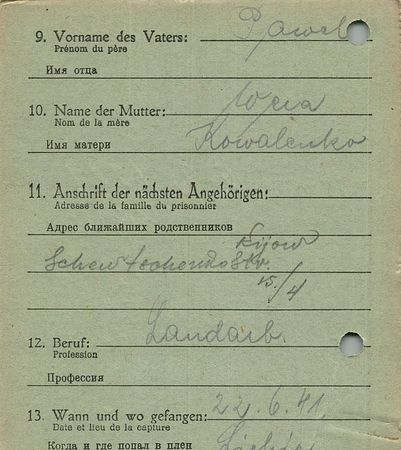 9. Vorname des Vaters: Pawel
Prénom du père
Имя отца
10. Name der Mutter: Wera
Nom de la mère
Kowalenko
Имя матери
11. Anschrift der nächsten Angehörigen:
Adresse de la famille du prisonnier
Адрес ближайших родственников
Kijow
Schewtschenko Str.
15/4
12. Beruf: Landarb.
Profession
Профессия
13. Wann und wo gefangen: 22.6.41.
Date et lieu de la capture
Когда и где попал в плен